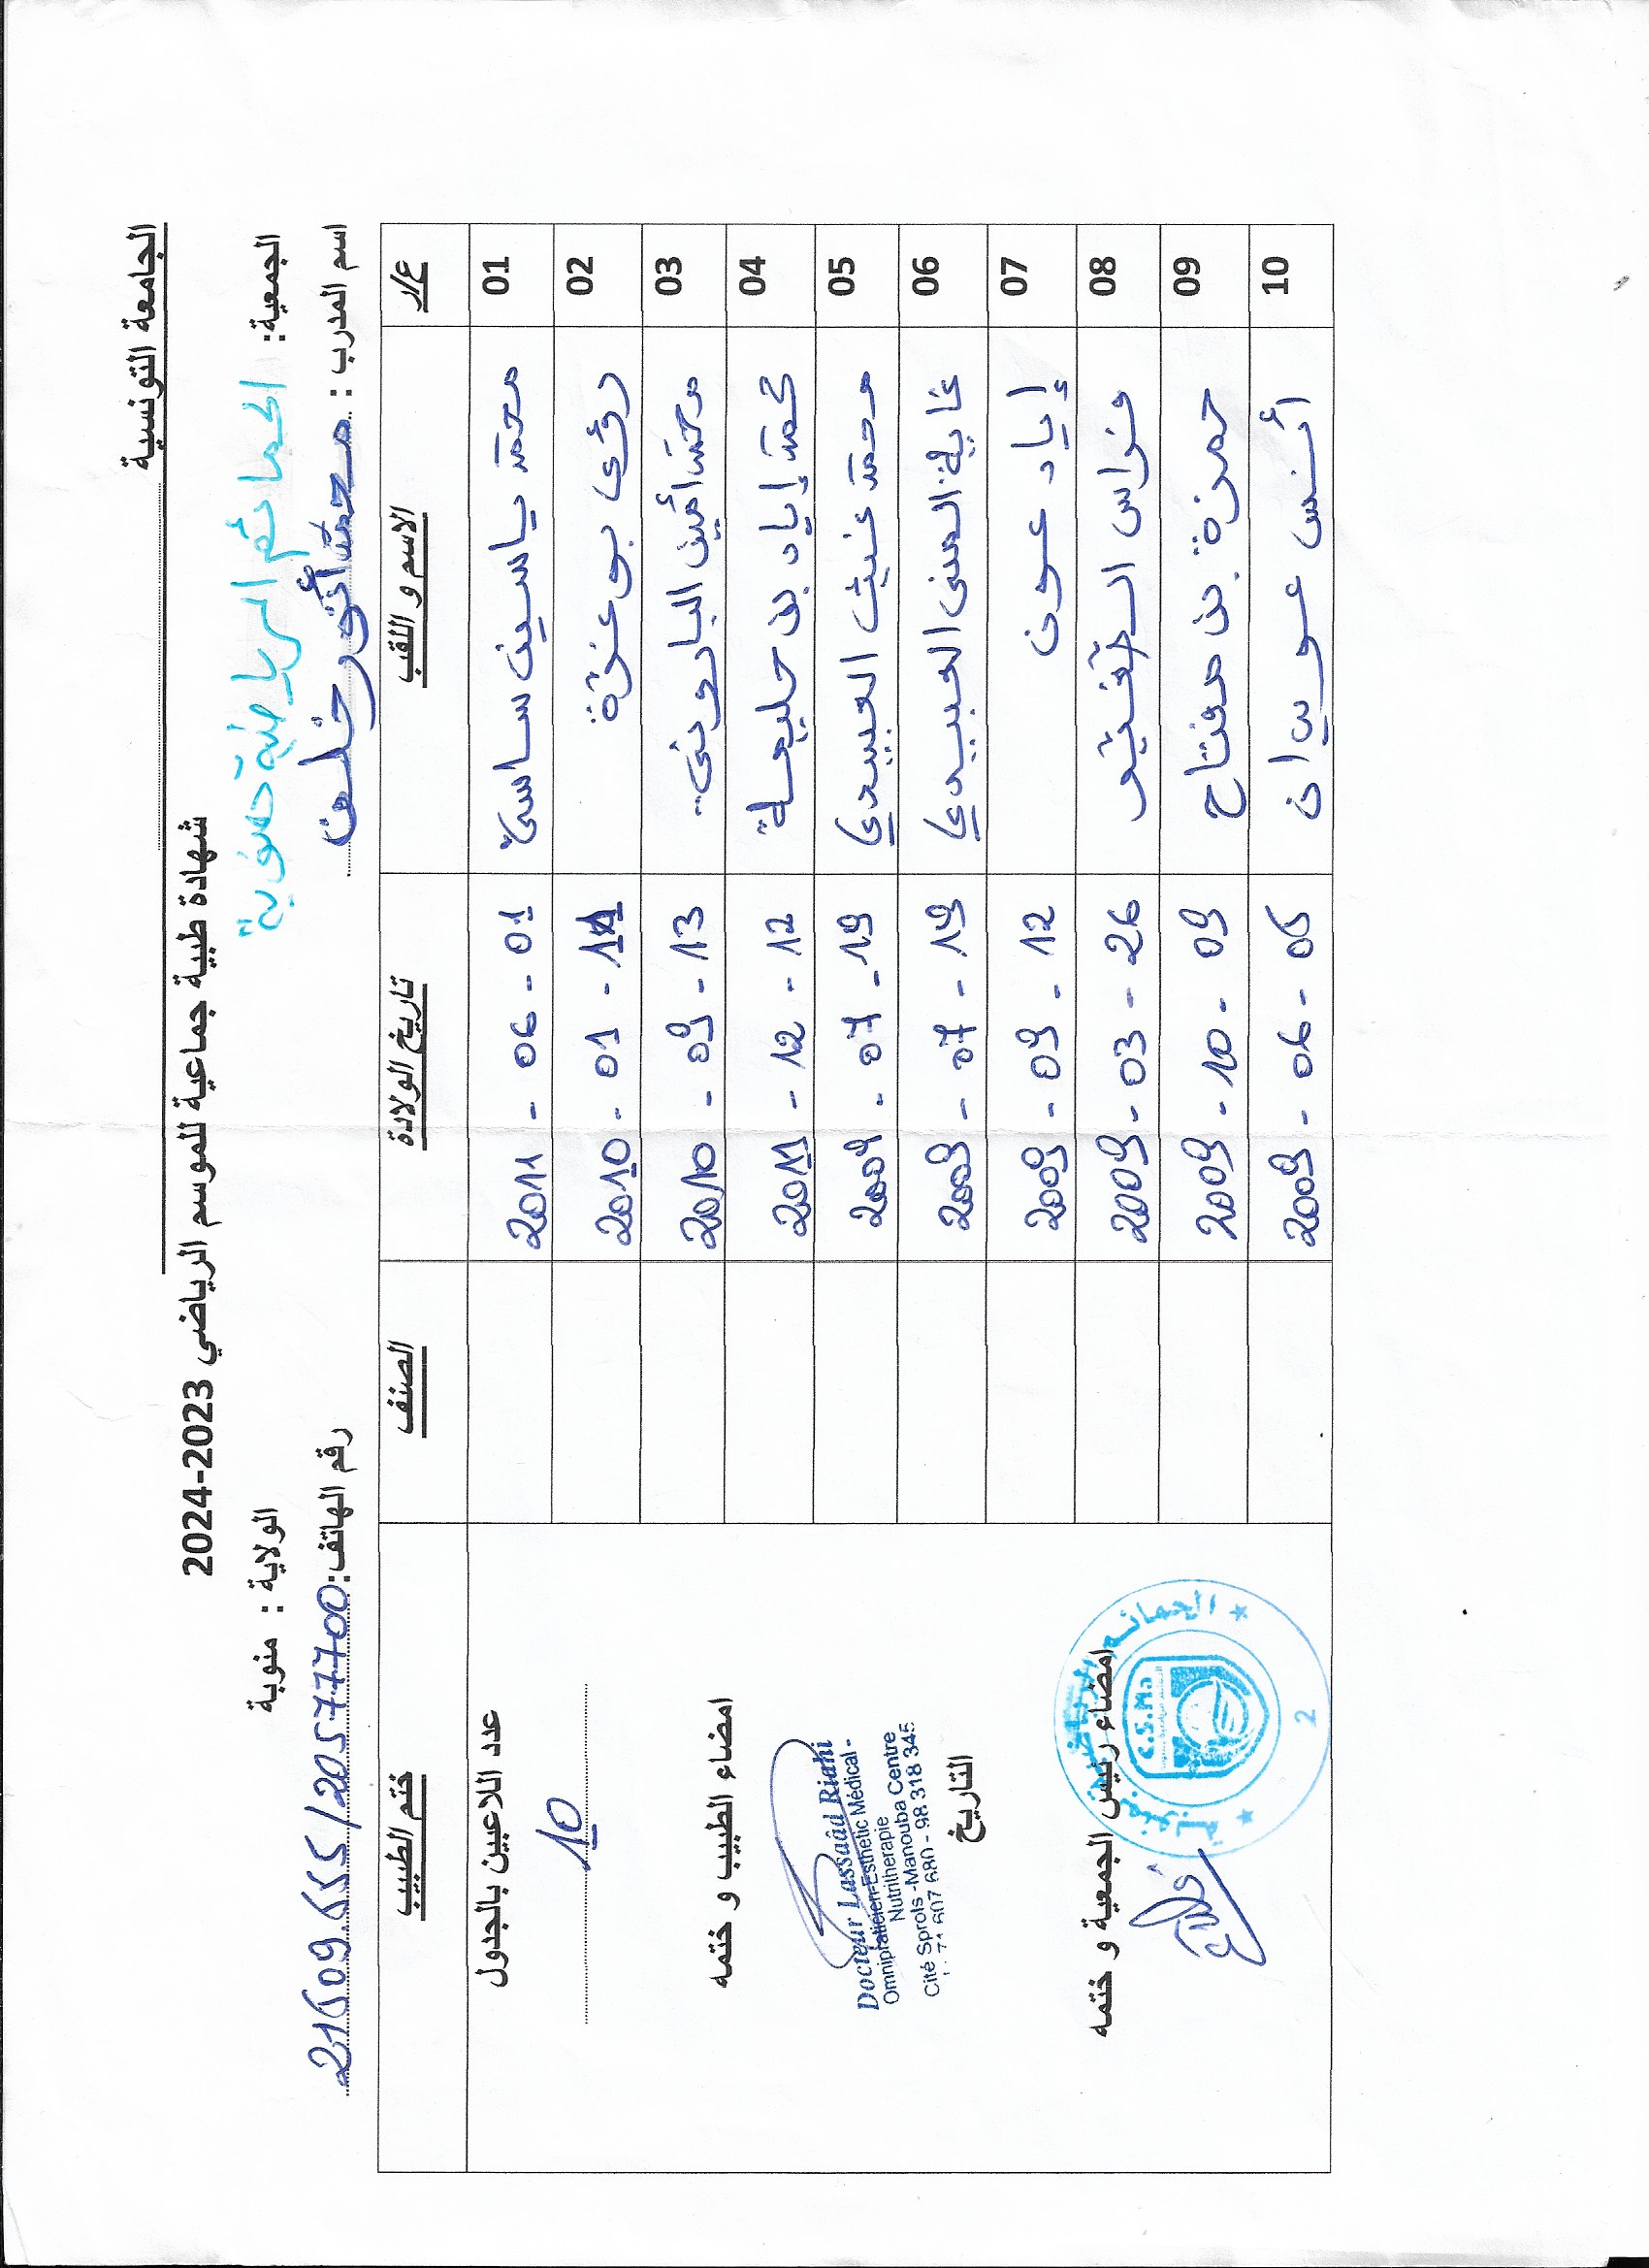 الجامعة التونسية
شهادة طبية جماعية للموسم الرياضي 2023-2024
الجمعية: الحمائم الرياضية بمنوبة الولاية : منوبة
اسم المدرب : محمد أنور خلف رقم الهاتف: 21609655/20577700
ع/ر الاسم و اللقب تاريخ الولادة الصنف ختم الطبيب
01 محمد ياسين ساسي 2011 - 06 - 01
02 رؤى بوعزة 2010 - 01 -
03 محمد أمين الباروني 2010 - 09 - 13
04 محمد إياد بن حليمة 2011 - 12 - 12
05 محمد غيث العبيدي 2009 - 07 - 19
06 غاية المنى العبيدي 2009 - 07 - 19
07 إياد عون 2009 - 09 - 12
08 فراس 2009 - 03 - 26
09 حمزة بن مفتاح 2009 - 10 - 09
10 أنس عويدان 2009 - 06 - 05
عدد اللاعبين بالجدول
10
امضاء الطبيب و ختمه
Docteur Lassaâd Riahi
Omnipraticien-Esthetic Médical -
Nutritherapie
Cité Sprols -Manouba Centre
71 607 680 - 98 318 345
التاريخ
امضاء رئيس الجمعية و ختمه
الحمائم الرياضية بمنوبة
C.S.Ma
2